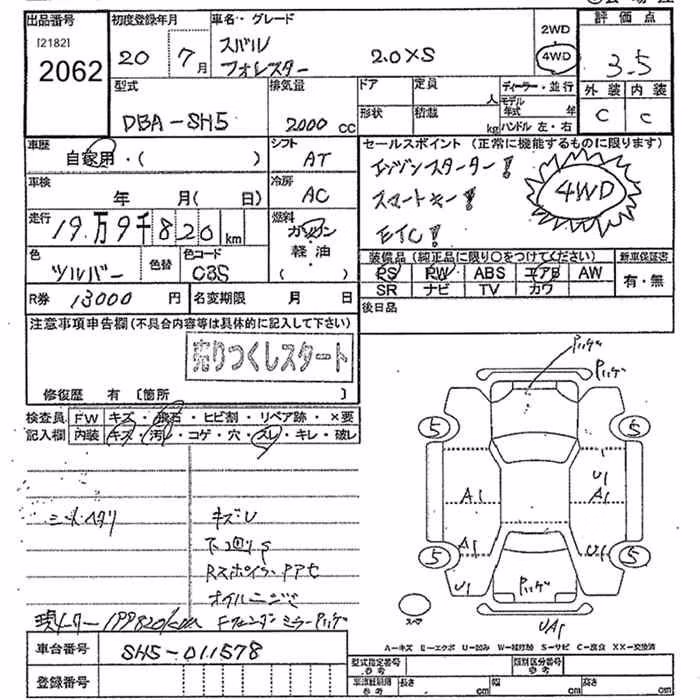 出品番号 初度登録年月 車名・グレード 2WD 評価点
[2182] 20 7月 スバル 4WD
2062 フォレスター 2.0XS 3.5
型式 排気量 ドア 定員 人 ディーラー・並行 外装 内装
DBA-SH5 2000 cc 形状 積載 kg モデル年式 年 C C
ハンドル 左・右
車歴 シフト セールスポイント (正常に機能するものに限ります)
自家用・( ) AT エンジンスターター!
車検 冷房 スマートキー! 4WD
年 月( 日) AC ETC!
走行 燃料
19万9千820km ガソリン
軽油
( )
色 色替 色コード 装備品(純正品に限り○をつけてください) 新車保証書
シルバー C3S PS PW ABS エアB AW 有・無
SR ナビ TV カワ
R券 13000円 名変期限 月 日 後日品
注意事項申告欄(不具合内容等は具体的に記入して下さい)
売りつくしスタート
修復歴 有 [箇所 ]
検査員 FW キズ・飛石・ヒビ割・リペア跡・×要
記入欄 内装 キズ・汚れ・コゲ・穴・スレ・キレ・破レ
シートヘタリ キズU
下回りS
オイルニジミ
現メーター199820km
車台番号 SH5-011578
登録番号
パハゲ
パハゲ
5 5
U1
A1 A1
A1 U1
5 5
U1
パハゲ
スペア
UA1
A-キズ E-エクボ U-凹み W-補修跡 S-サビ C-腐食 XX-交換済
型式指定番号 参考 類別区分番号 参考
車両諸元 参考 長さ cm 幅 cm 高さ cm